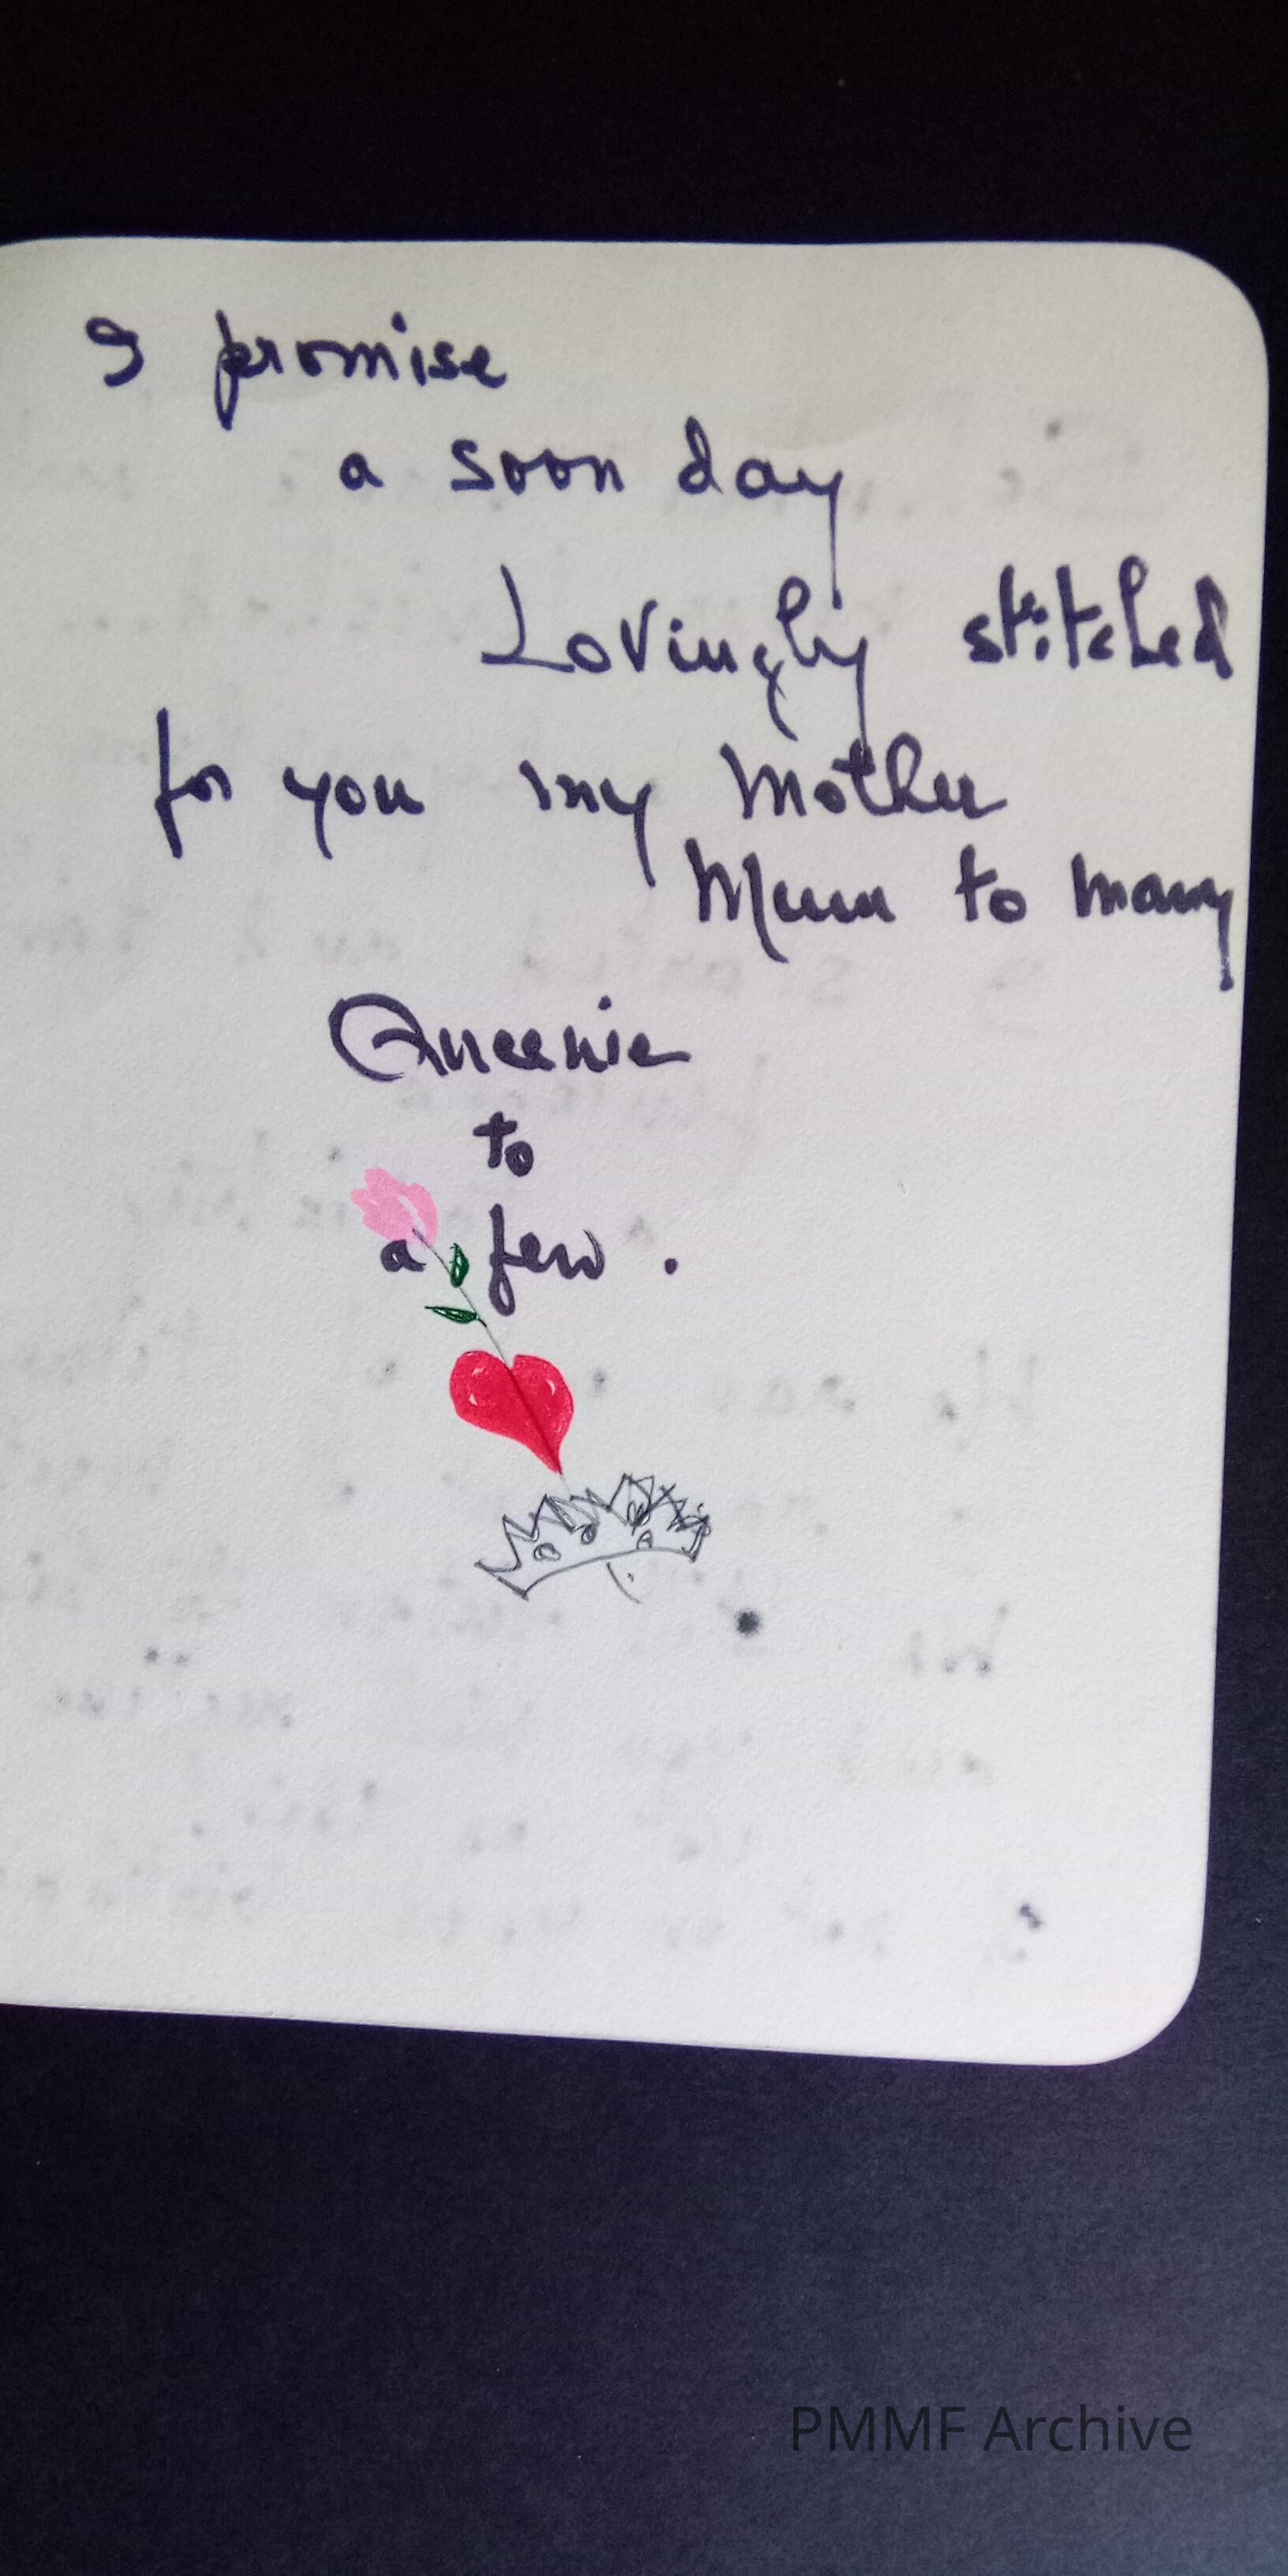 I promise
a soon day
Lovingly stitched
for you my Mother
Mum to many
Queenie
to
a few.
PMMF Archive